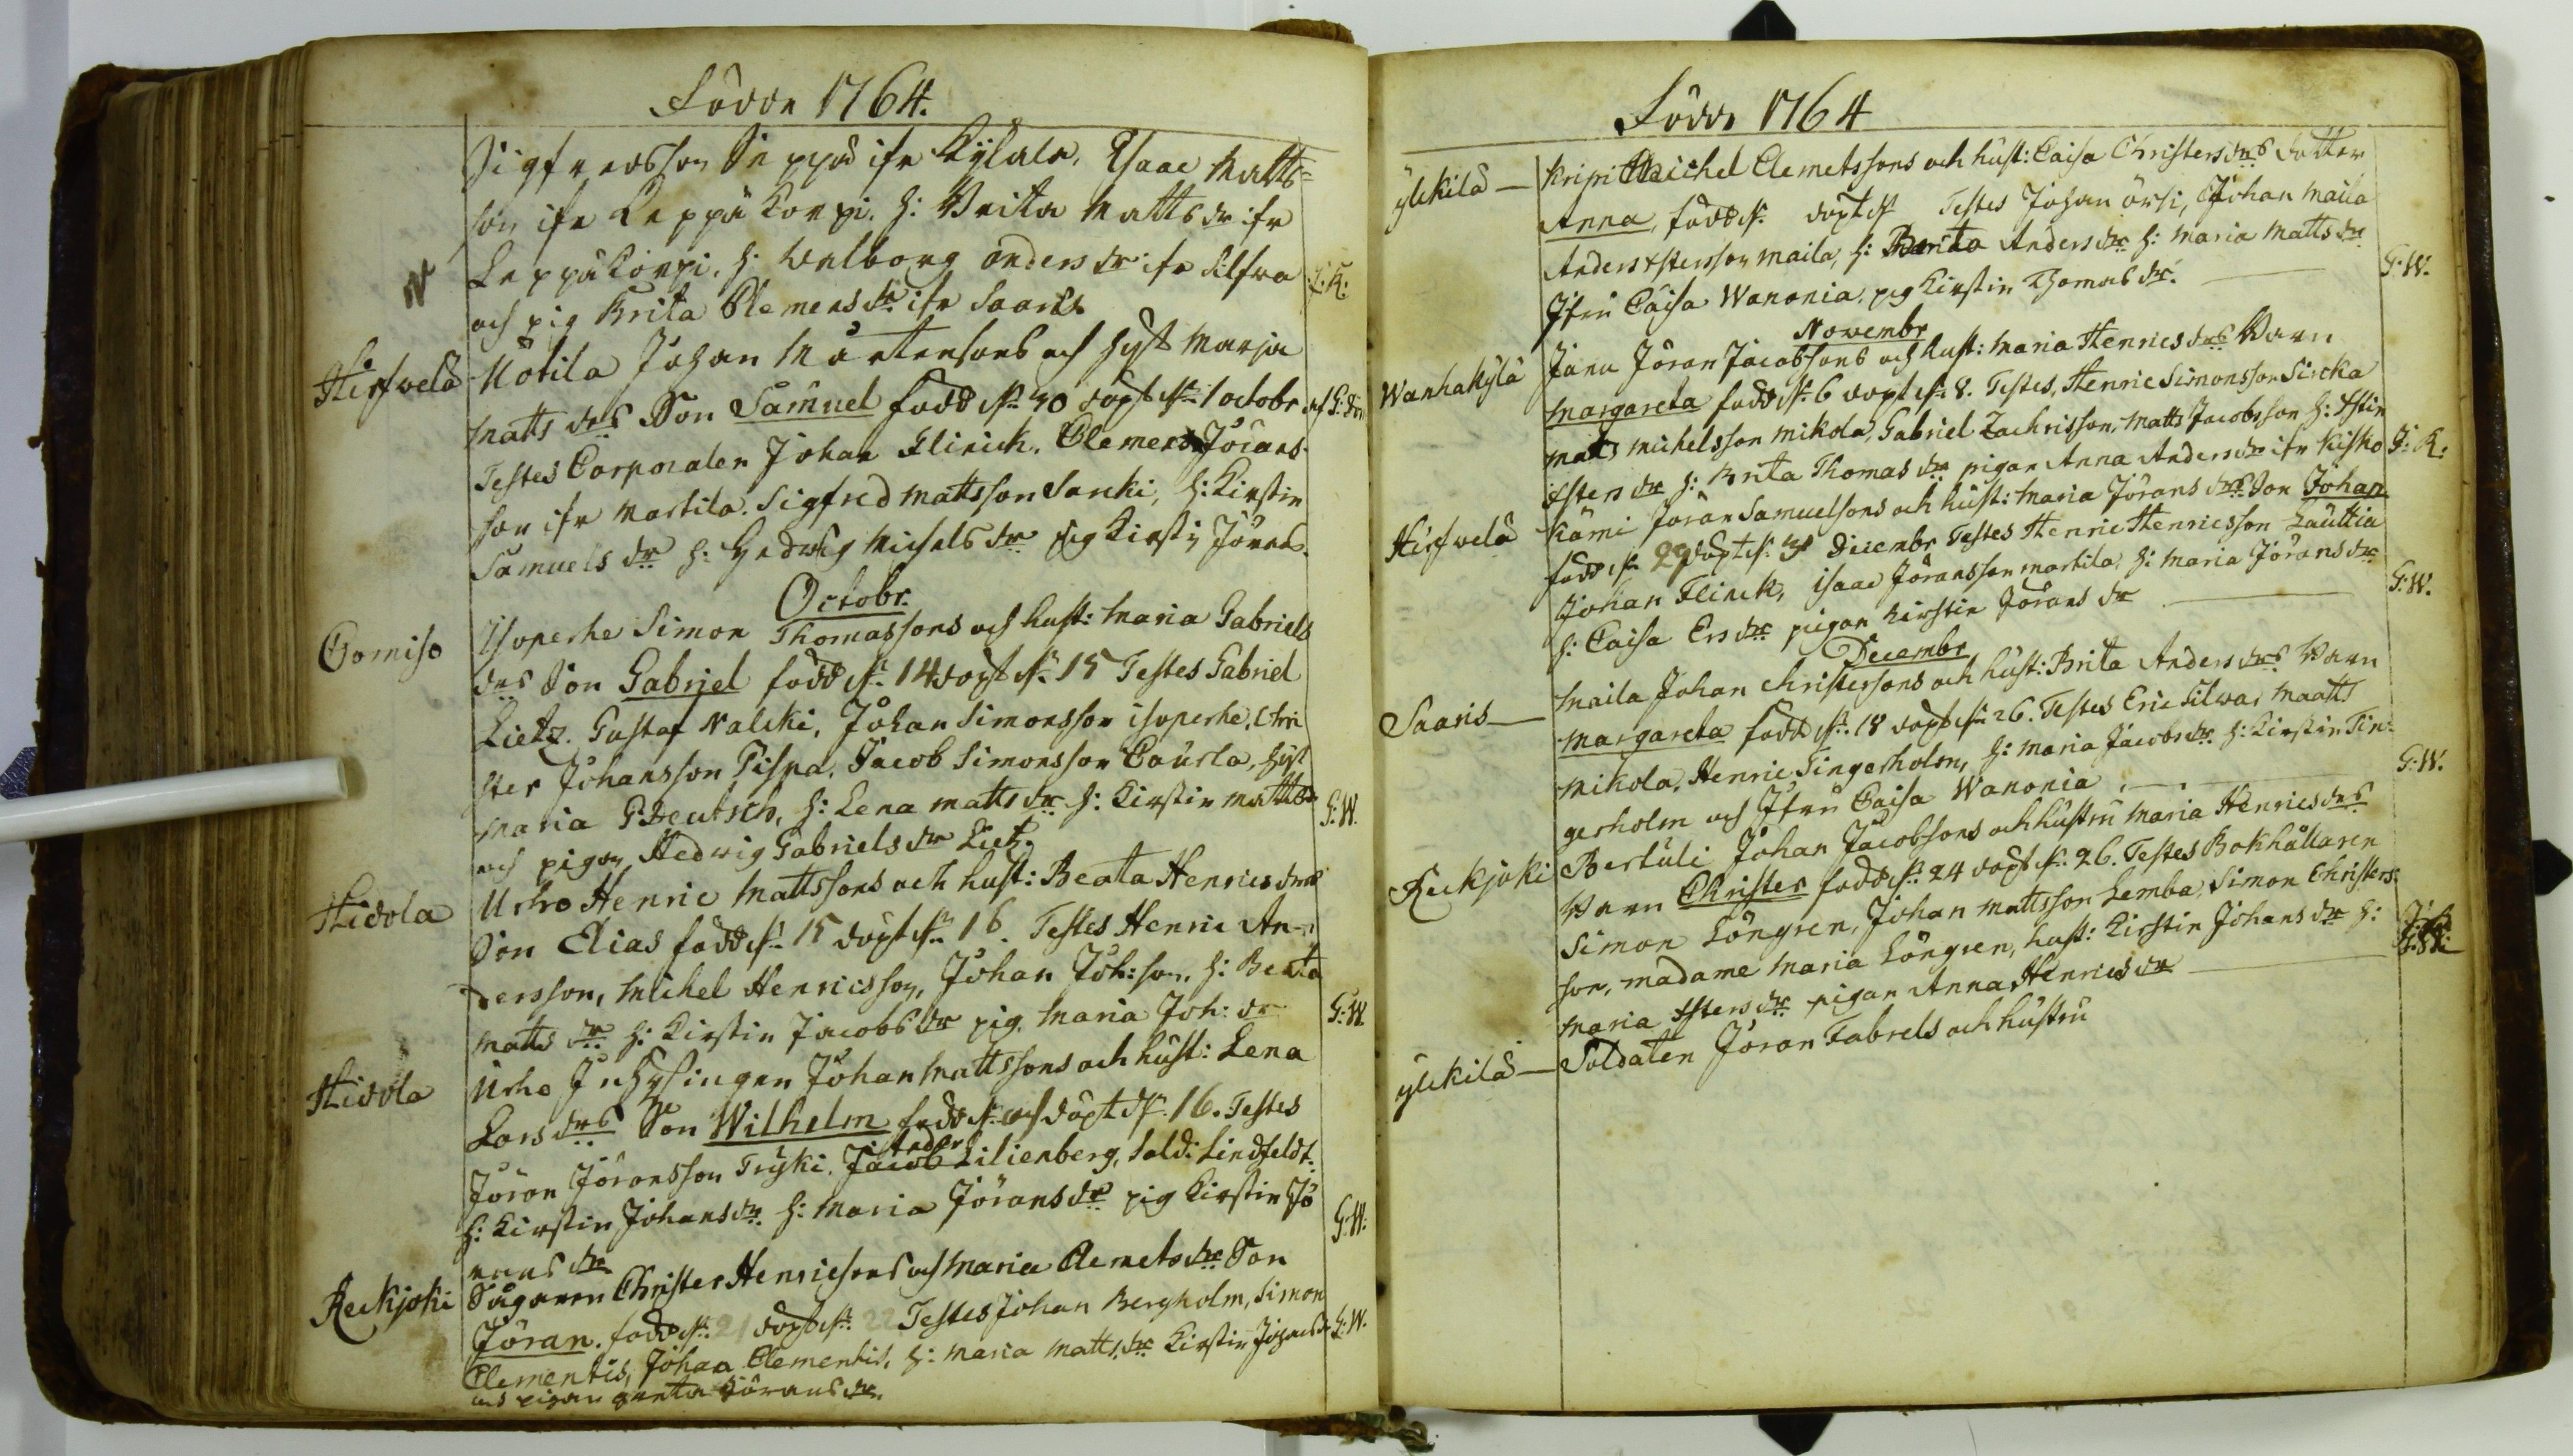 Födde 1764.
Sigfredsson Seppä ifr Kylala, Isaac Matts=
son ifr Leppäkorpi. h: Brita Matts dr ifr
Leppäkorpi, h. Walborg Anders dr ifr Silfva
och pig Brita Clemens dr ifr Saaris. J: K:
Hirfvelä Uotila Johan Mårtensons och hust Marja
Matts drs Son Samuel född d. 30 döpt d. 1 octobr
Testes Corporalen Johan Flinck, Clemens Jörans-
son ifr Martila. Sigfred Mattsson Sanki, h: Kirstin
Samuels dr h: Hedwig Michels dr pig Kirstin Jörans.
Octobr.
Tomiso Isoperhe Simon Thomassons och hust: Maria Gabriels
drs Son Gabriel född d. 14 döpt d. 15 Testes Gabriel
Lietz. Gustaf Nalcki, Johan Simonsson isoperhe, Chri
ster Johansson Pispa, Jacob Simonsson Caurla, hust
Maria Deutsch, h: Lena Matts dr h: Kirstin Matts dr G: W.
och pigan Hedwig Gabriels dr Lietz.
Hidola Urho Henric Mattssons och hust: Beata Henrics drs
Son Elias född d. 15 döpt d. 16. Testes Henric An-
dersson, Michel Henricsson, Johan Joh:son, h: Beata
Matts dr h: Kirstin Jacobs dr pig. Maria Joh: dr G: W.
Hidola Urho Inhysingen Johan Mattssons och hust: Lena
Lars drs Son Wilhelm född d. och döpt d. 16. Testes
Jöran Jöransson Tryki. Jacob Anders Lilienberg, Sold: Lindfeldt.
h: Kirstin Johans dr h: Maria Jörans dr pig Kirstin Jö G: W.
rans dr
Reckjoki Sågaren Christer Henricsons och Maria Clemets drs Son
Jöran. född d. 21 döpt d. 22 Testes Johan Bergholm, Simon
Clementis, Johan Clementis, h: Maria Matts dr Kirstin Johans dr G: W.
och pigan Greta Jörans dr.
Födde 1764
ylikilä — Kripi Michel Clemetssons och hust: Caisa Christers drs dotter
Anna, född d. döpt d. Testes Johan örsi, Johan Maila
Anders Xstersson Maila, h: Brita Anders dr h: Maria Matts dr
Jfru Caisa Wanonia, pig Kirstin Thomas dr. G: W.
Novembr
Wanhakylä Janu Jöran Jacobssons och hust: Maria Henrics drs Barn
Margareta född d. 6 döpt d. 8. Testes, Henric Simonsson Sircka
Mats Michelsson Mikola, Gabriel Zachrisson, Matts Jacobsson h: Xstin
Xsters dr h: Brita Thomas dr pigan Anna Anders dr ifr Kisko J: K:
Hirfvelä Kåmi Jöran Samuelsons och hust: Maria Jörans drs Son Johan
född d. 29 döpt d. 3 Decembr Testes Henric Henricsson Lauttia
Johan Flinck, isaac Jöransson Martila, h: Maria Jörans dr
h: Caisa Ers dr pigan Kirstin Jörans dr G: W.
Decembr
Saaris — Maila Johan Christersons och hust: Brita Anders drs Barn
Margareta född d. 18 döpt d. 26. Testes Eric Silwa, Maatts
Mikola, Henric Tingerholm, h: Maria Jacobs dr h: Kirstin Tin-
gerholm och Jfru Caisa Wanonia G: W.
Reckjoki Bertuli Johan Jacobsons och hustru Maria Henrics drs
Barn Christer född d. 24 döpt d. 26. Testes Bokhållaren
Simon Löngren, Johan Mattsson Lemba, Simon Christers-
son, Madame Maria Löngren, hust: Kirstin Johans dr h:
Maria Xsters dr pigan Anna Henrics dr
ylikilä — Soldaten Jöran Fabrels och hustru